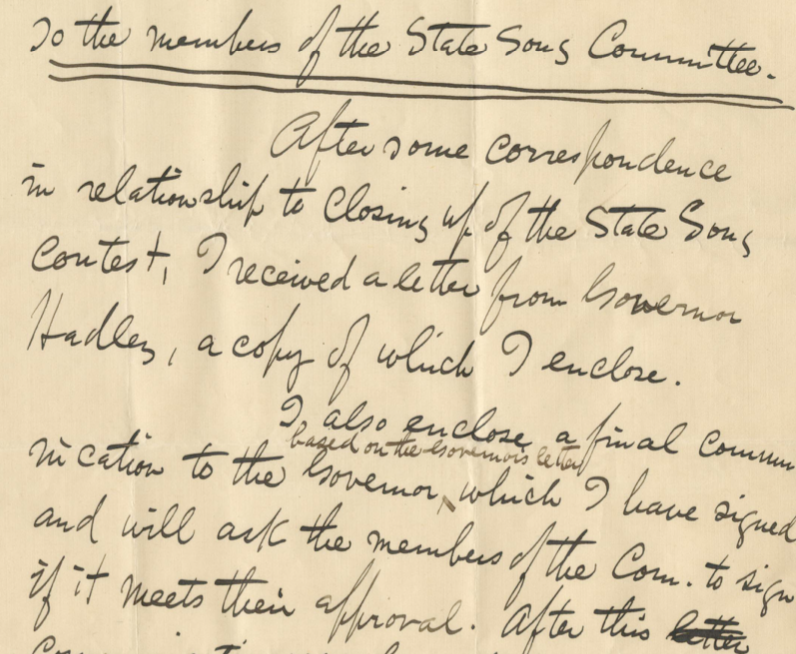 To the members of the State Song Committee.
After some correspondence
in relationship to closing up of the State Song
Contest, I received a letter from Governor
Hadley, a copy of which I enclose.
I also enclose a final commu
nication to the Governor, which I have signed
based on the Governors letter
and will ask the members of the Com. to sign
if it meets their approval. After this letter